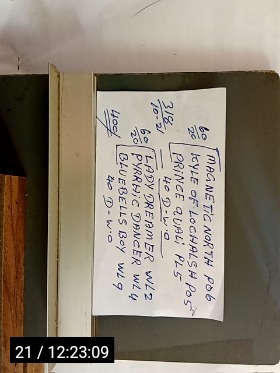 MAGNETIC NORTH PO6
60/20 KYLE OF LOCHALSH PO5
PRINCE QUALI PL5
40 D-W-O
LADY DREAMER WL2
60/20 PYRRHIC DANCER WL4
BLUEBELLS BOY WL9
40 D-W-O
400/
21 / 12:23:09